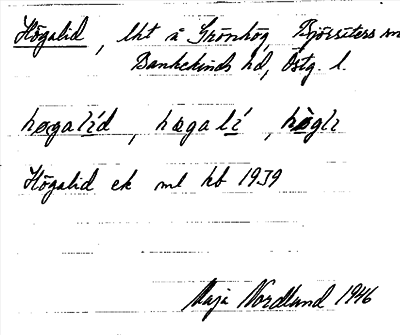 Högalid, lht å Grönhög, Björsäters sn
Bankekinds hd, Östg. l.
høgalíd, høgalí, høgli
Högalid ek ml kb 1939
Maja Nordlund 1946